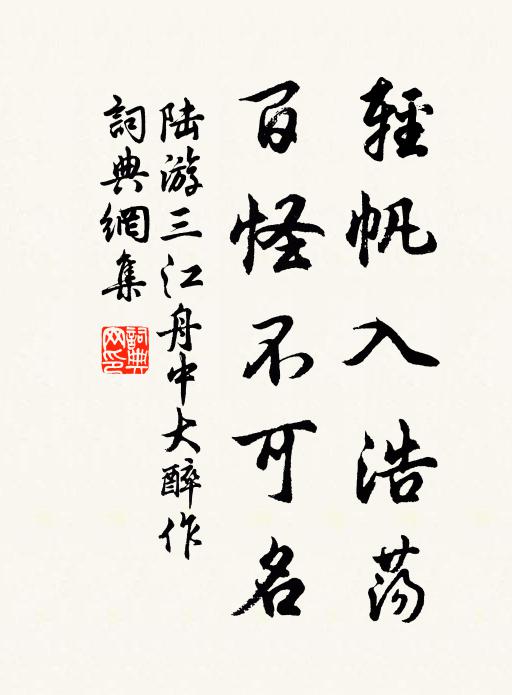 輕帆入浩荡
百怪不可名
陆游三江舟中大醉作
詞典網集
詞典网印